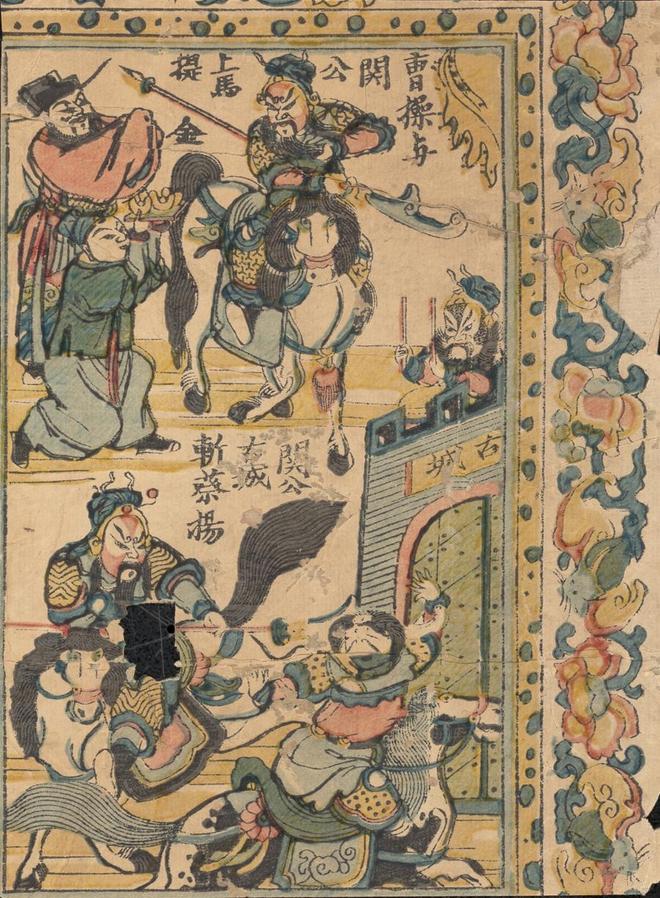 曹操与
関
公
上馬
提
金
関公
古城
斬蔡揚
古城